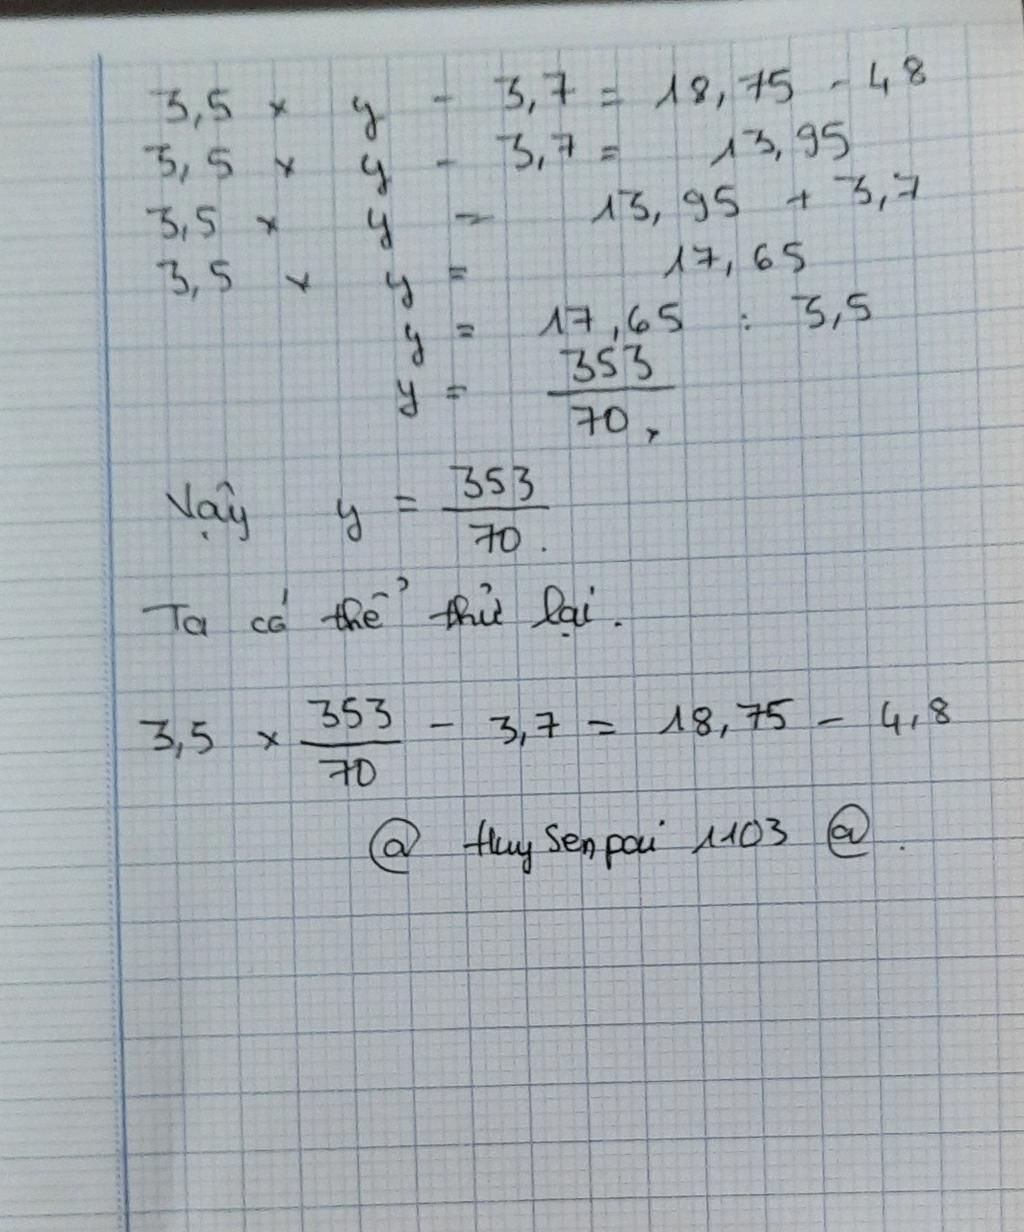 3,5 × y - 3,7 = 18,75 - 48
3,5 × y - 3,7 = 13,95
3,5 × y = 13,95 + 3,7
3,5 × y = 17,65
y = 17,65 : 3,5
y = 353/70,
Vậy y = 353/70.
Ta có thể thử lại.
3,5 × 353/70 - 3,7 = 18,75 - 4,8
@ Huy Senpai 1103 @.